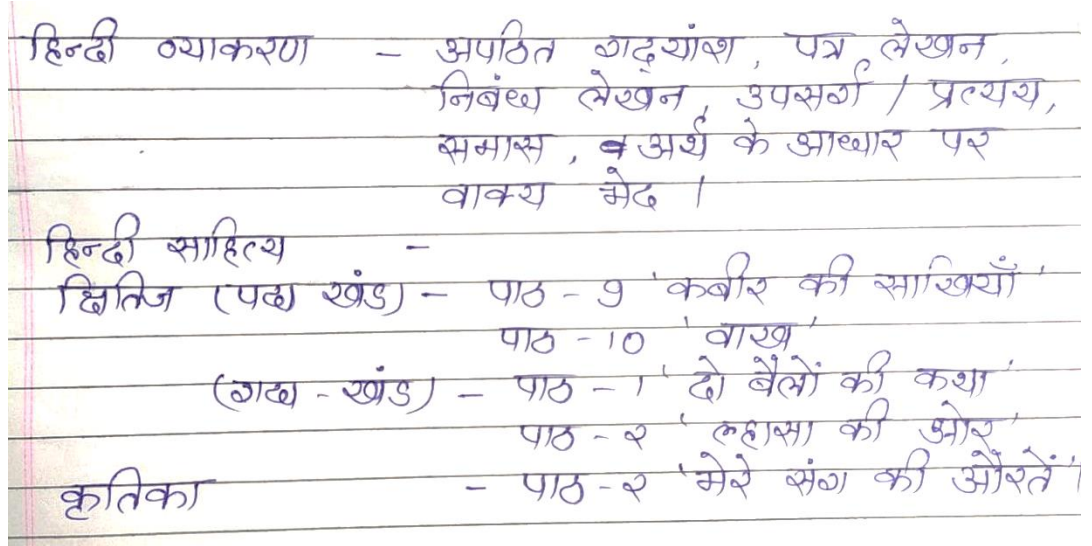 हिन्दी व्याकरण - अपठित गद्यांश, पत्र लेखन,
निबंध लेखन, उपसर्ग / प्रत्यय,
समास, व अर्थ के आधार पर
वाक्य भेद ।
हिन्दी साहित्य -
क्षितिज (पद्य खंड) - पाठ - 9 'कबीर की साखियाँ'
पाठ - 10 'वाख'
(गद्य - खंड) - पाठ - 1 'दो बैलों की कथा'
पाठ - २ 'ल्हासा की ओर'
कृतिका - पाठ - २ 'मेरे संग की औरतें'।